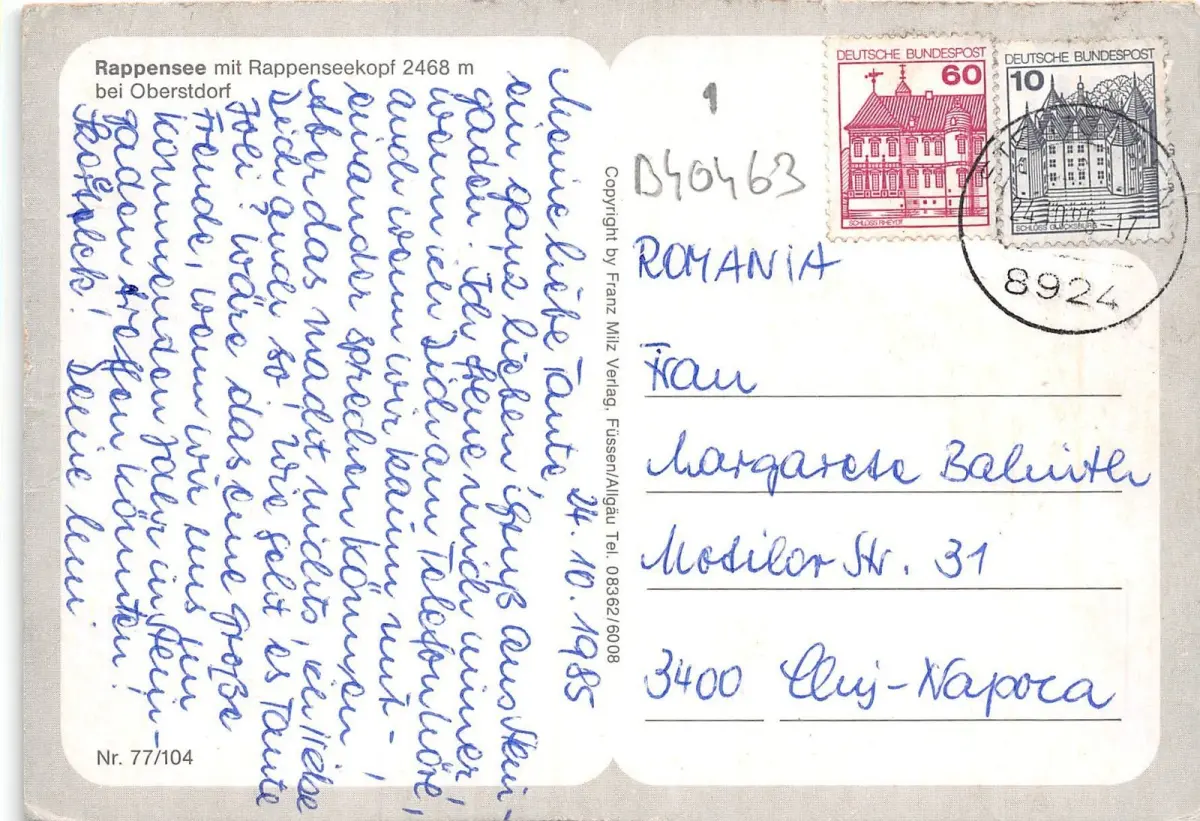 Rappensee mit Rappenseekopf 2468 m
bei Oberstdorf
24. 10. 1985
Meine liebe Tante,
ein ganz lieben Gruß aus Stein-
gaden. Ich freue mich immer,
wenn ich Dich am Telefon höre,
auch wenn wir kaum mit-
einander sprechen können.
Aber das macht nichts, ich liebe
Dich auch so! Wie geht es Tante
Joli? Wäre das eine große
Freude, wenn wir uns im
kommenden Jahr in Stein-
gaden treffen könnten!
Deine
Nr. 77/104
Copyright by Franz Milz Verlag, Füssen/Allgäu Tel. 08362/6008
1
D40463
DEUTSCHE BUNDESPOST
60
SCHLOSS RHEYDT
DEUTSCHE BUNDESPOST
10
SCHLOSS GLÜCKSBURG
8924
ROMANIA
Frau
Margarete Balinth
Motilor Str. 31
3400 Cluj-Napoca